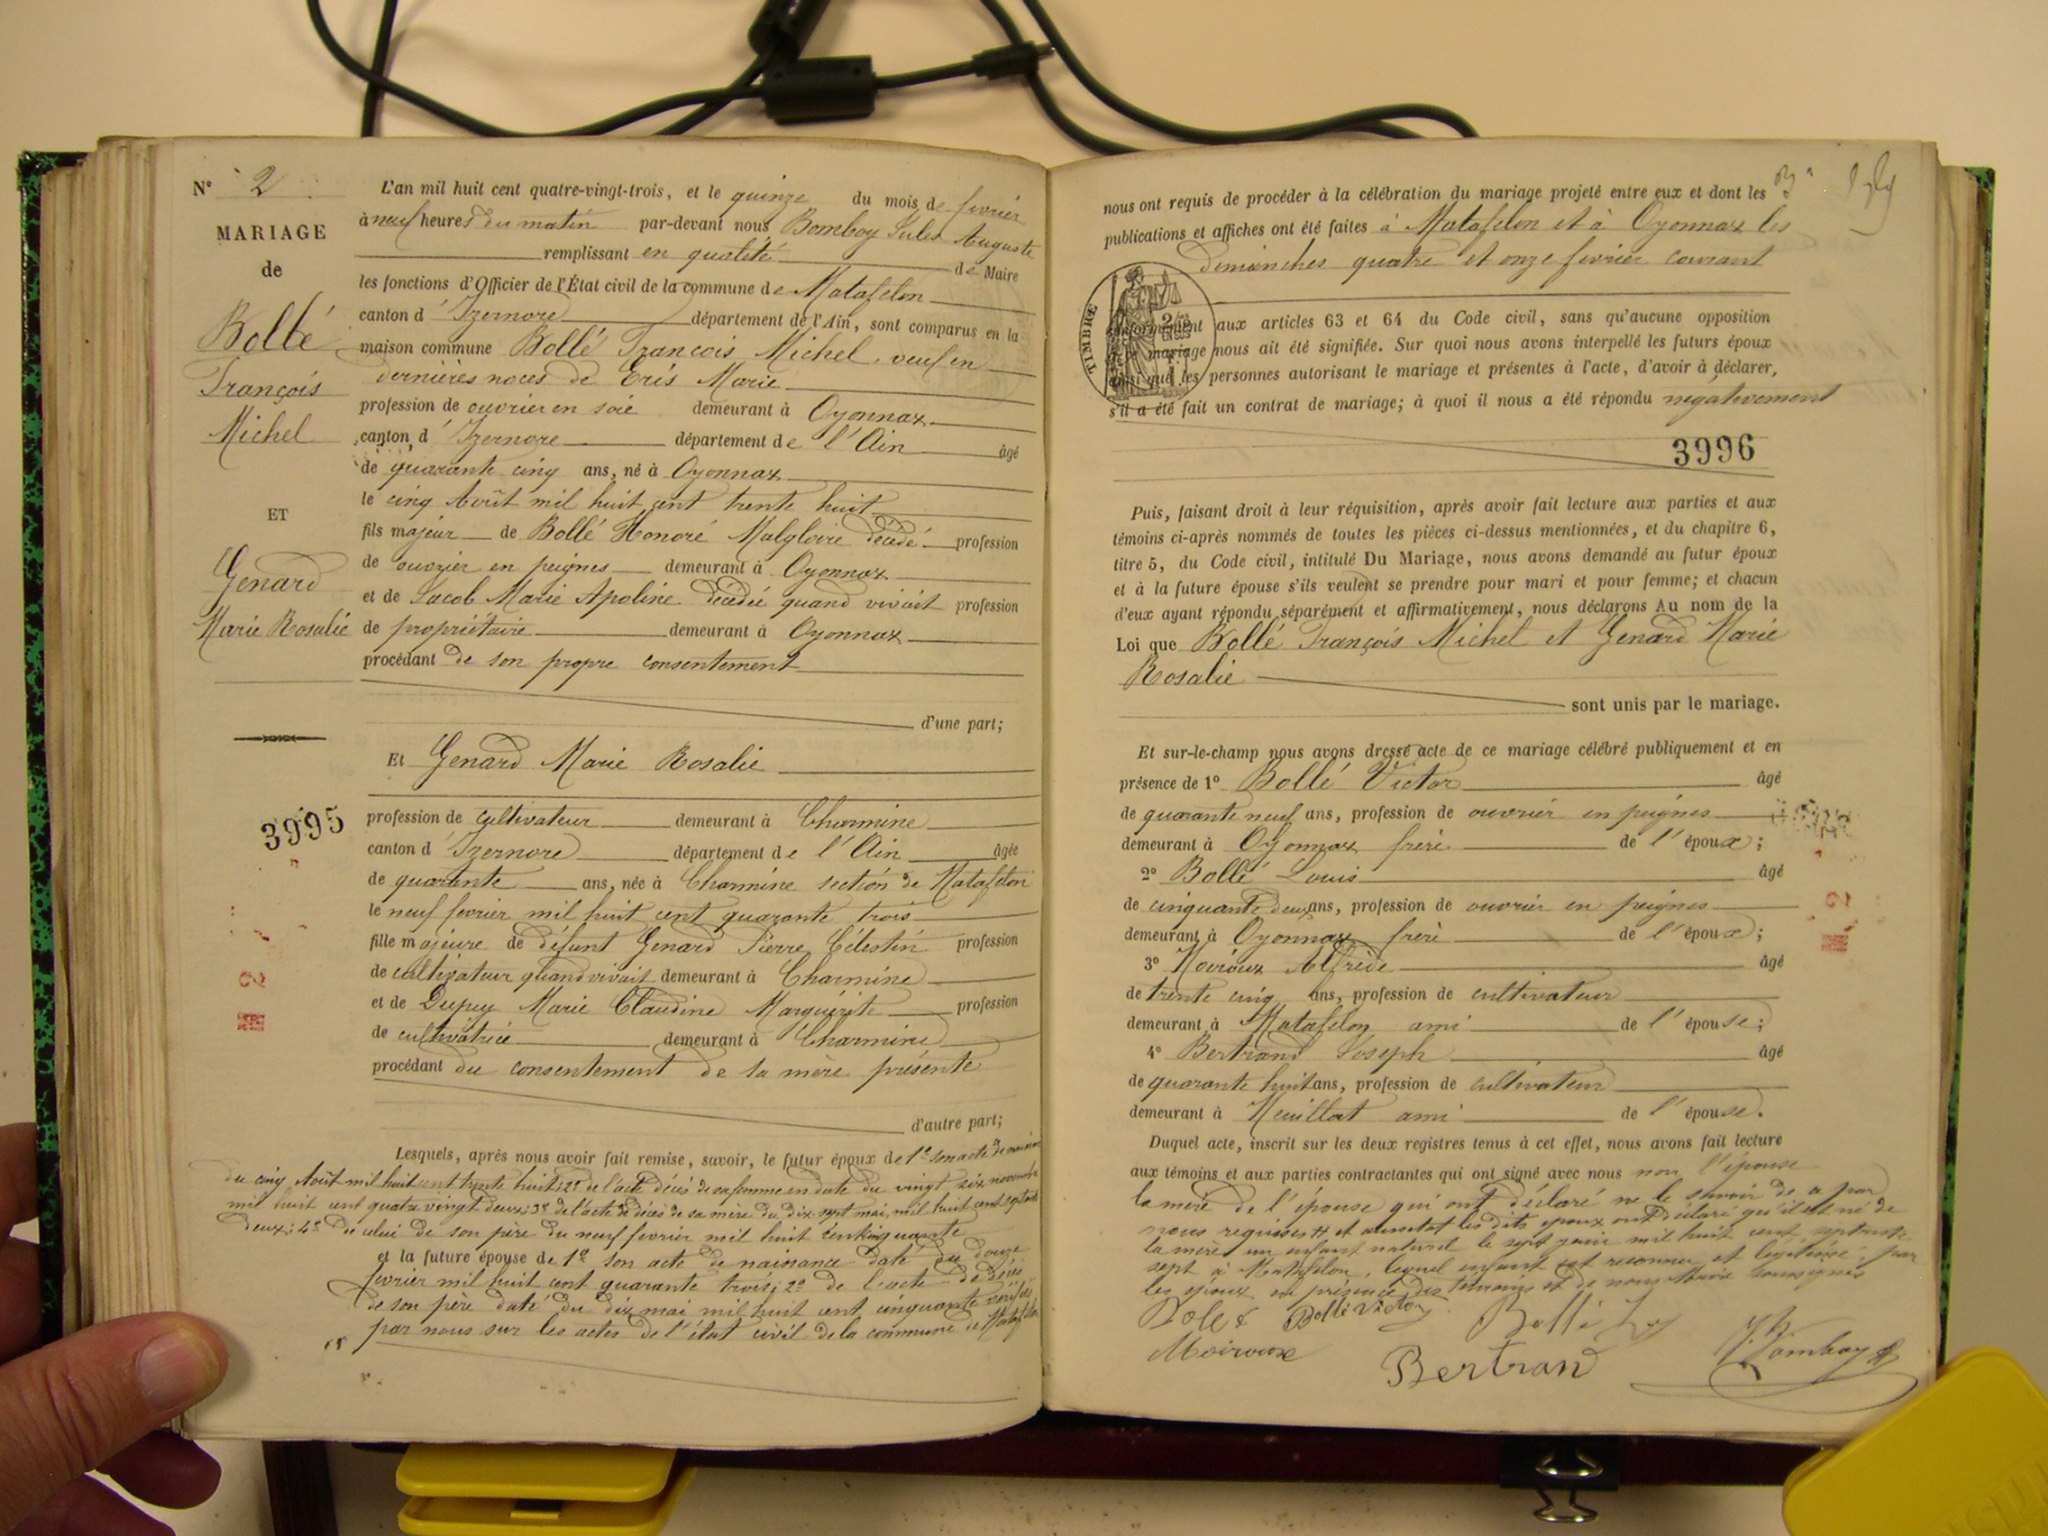 N° 2
MARIAGE
de
Bollé
François
Michel
ET
Genard
Marie Rosalie
3995
L'an mil huit cent quatre-vingt-trois, et le quinze du mois de fevrier
à neuf heures du matin par-devant nous Bomboy Jules Auguste
remplissant en qualité de Maire
les fonctions d'Officier de l'État civil de la commune de Matafelon
canton d'Izernore département de l'Ain, sont comparus en la
maison commune Bollé François Michel, veuf en
dernières noces de Eris Marie
profession de ouvrier en soie demeurant à Oyonnax
canton d'Izernore département de l'Ain âgé
de quarante cinq ans, né à Oyonnax
le cinq Août mil huit cent trente huit
fils majeur de Bollé Honoré Malgloire décédé profession
de ouvrier en peignes demeurant à Oyonnax
et de Jacob Marie Apoline décédée quand vivait profession
de propriétaire demeurant à Oyonnax
procédant de son propre consentement
d'une part;
Et Genard Marie Rosalie
profession de cultivateur demeurant à Charmine
canton d'Izernore département de l'Ain âgée
de quarante ans, née à Charmine section de Matafelon
le neuf fevrier mil huit cent quarante trois
fille majeure de défunt Genard Pierre Célestin profession
de cultivateur quand vivait demeurant à Charmine
et de Dupuy Marie Claudine Marguerite profession
de cultivatrice demeurant à Charmine
procédant du consentement de sa mère présente
d'autre part;
Lesquels, après nous avoir fait remise, savoir, le futur époux de 1° son acte de naissance
du cinq Août mil huit cent trente huit; 2° de l'acte décès de sa femme en date du vingt six novembre
mil huit cent quatre vingt deux; 3° de l'acte de décès de sa mère du dix sept mai mil huit cent septante
deux; 4° de celui de son père du neuf fevrier mil huit cent cinquante
et la future épouse de 1° son acte de naissance daté du douze
fevrier mil huit cent quarante trois; 2° de l'acte de décès
de son père daté du dix mai mil huit cent cinquante vérifiés
par nous sur les actes de l'état civil de la commune de Matafelon
nous ont requis de procéder à la célébration du mariage projeté entre eux et dont les
publications et affiches ont été faites à Matafelon et à Oyonnax les
dimanches quatre et onze fevrier courant
TIMBRE
conformément aux articles 63 et 64 du Code civil, sans qu'aucune opposition
à ce mariage nous ait été signifiée. Sur quoi nous avons interpellé les futurs époux
ainsi que les personnes autorisant le mariage et présentes à l'acte, d'avoir à déclarer,
s'il a été fait un contrat de mariage; à quoi il nous a été répondu négativement
3996
Puis, faisant droit à leur réquisition, après avoir fait lecture aux parties et aux
témoins ci-après nommés de toutes les pièces ci-dessus mentionnées, et du chapitre 6,
titre 5, du Code civil, intitulé Du Mariage, nous avons demandé au futur époux
et à la future épouse s'ils veulent se prendre pour mari et pour femme; et chacun
d'eux ayant répondu séparément et affirmativement, nous déclarons Au nom de la
Loi que Bollé François Michel et Genard Marie
Rosalie
sont unis par le mariage.
Et sur-le-champ nous avons dressé acte de ce mariage célébré publiquement et en
présence de 1° Bollé Victor âgé
de quarante neuf ans, profession de ouvrier en peignes
demeurant à Oyonnax frère de l'époux;
2° Bollé Louis âgé
de cinquante deux ans, profession de ouvrier en peignes
demeurant à Oyonnax frère de l'époux;
3° Moiroux Alfrède âgé
de trente cinq ans, profession de cultivateur
demeurant à Matafelon ami de l'épouse;
4° Bertrand Joseph âgé
de quarante huit ans, profession de cultivateur
demeurant à Heuillat ami de l'épouse.
Duquel acte, inscrit sur les deux registres tenus à cet effet, nous avons fait lecture
aux témoins et aux parties contractantes qui ont signé avec nous non l'épouse
la mère de l'épouse qui ont déclaré ne le savoir de a par
nous requises et aussitot les dits epoux ont déclaré qu'il est né de
la mère un enfant naturel le sept juin mil huit cent septante
sept à Matafelon, lequel enfant est reconnu et légitimé par
les époux en présence des temoins et de nous Maire soussignés
Bolé Bollé Victor Bollé
Moiroux Bertrand J. Bomboy